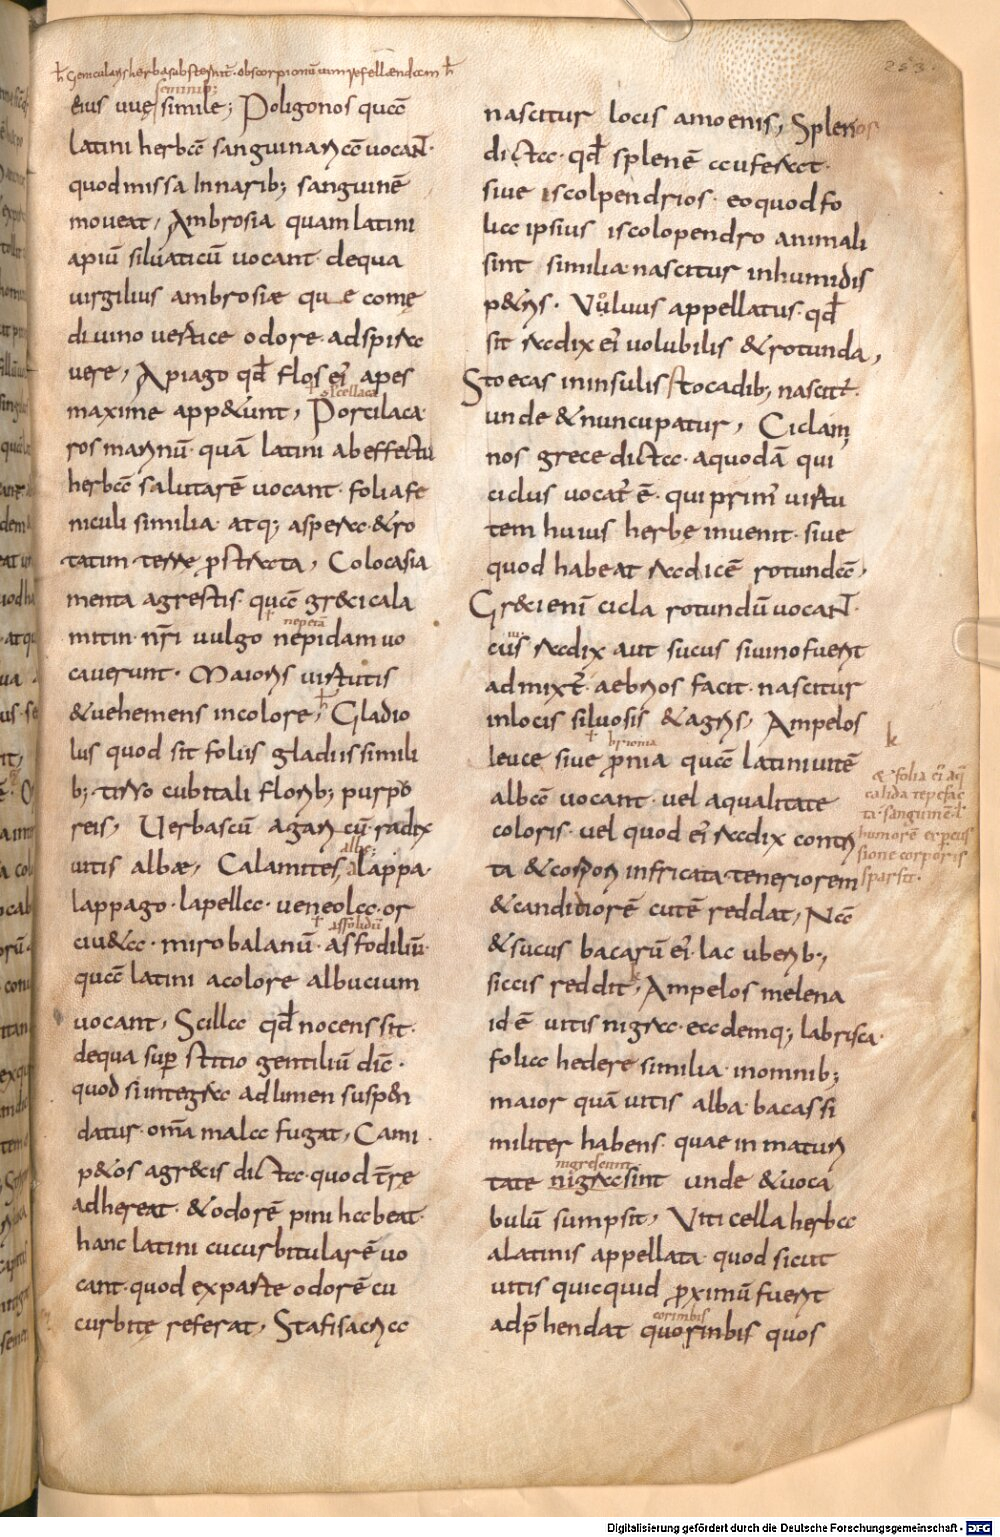 253
Genicularis herba substernit͛ · ob scorpionū uim refellendam
seminis;
eius uuę simile; Poligonos quā
latini herbā sanguinariā uocant·
quod missa Innarib; sanguinē
moueat, Ambrosia quam latini
apiū siluaticū uocant· de qua
uirgilius ambrosiæ que comę
diuino uertice odore· adspira
uere, Apiago qđ flos ei᷒ apes
maxime appetunt, Portilaca·
ros marinū· quā latini ab effectu
herbā salutarē uocant· folia fe
niculi similia· atq; aspera· & ro
tatim terre pstrata, Colocasia
menta agrestis· quā greci cala
nepetā
mitin· nr̄i uulgo nepidam uo
cauerunt· Maioris uirtutis
& uehemens in colore, Gladio
lus quod sit foliis gladiis simili
b; tirso cubitali florib; purpo
reis, Uerbascū agari cū radix
albę;
uitis albæ, Calamites, lappa·
lappago· lapella· ueneola· or
asfolidiū
ciu&a· mirobalanū· asfodiliū·
quā latini acolore albucium
uocant, Scilla qđ nocens sit·
de qua sup stitio gentiliū dic̄·
quod si integra ad limen suspen
datur· om̄a mala fugat, Cami
p&os agr&is dicta· quod t̄re
adhereat· & odorē pini habeat·
hanc latini cucurbitularē uo
cant· quod ex parte odorē cu
curbitę referat, Stafisacria
nascitur locis amoenis, Splenos
dicta· qđ splenē auferat·
siue iscolpendrios· eo quod fo
lia ipsius iscolopendro animali
sint similia· nascitur in humidis
p&ris· Vuluus appellatus· qđ
sit radix ei᷒ uolubilis & rotunda,
Stoecas in insulis stocadib; nascit͛·
unde & nuncupatur, Ciclami
nos grece dicta· a quodā qui
ciclus uocat᷒ ē· qui prim᷒ uirtu
tem huius herbe inuenit· siue
quod habeat radicē rotundā,
Gr&i enī cicla rotundū uocant·
cui᷒ radix aut sucus si uino fuerit
admixt᷒· aebrios facit· nascitur
in locis siluosis & agris, Ampelos
brionia
leuce siue pnia quā latini uitē
albā uocant· uel a qualitate
coloris· uel quod ei᷒ radix contri
ta & corpori infricata· teneriorem
& candidiorē cutē reddat, Nā
& sucus bacarū ei᷒· lac uberib;
siccis reddit, Ampelos melena
id ē uitis nigra· eademq; labrisca·
folia hedere similia· in omnib;
maior quā uitis alba· bacas si
militer habens· quae in maturi
nigrescunt
tate nigra sint unde & uoca
bulū sumpsit, Viticella herba
a latinis appellata· quod sicut
uitis quicquid pximū fuerit
corimbis
adp̄hendat quorinbis quos
k
& folia ei᷒ aq̄
calida tepefac
ta· sanguinē ł
humorē ex pcus
sione corporis
sparsit·
Digitalisierung gefördert durch die Deutsche Forschungsgemeinschaft - DFG